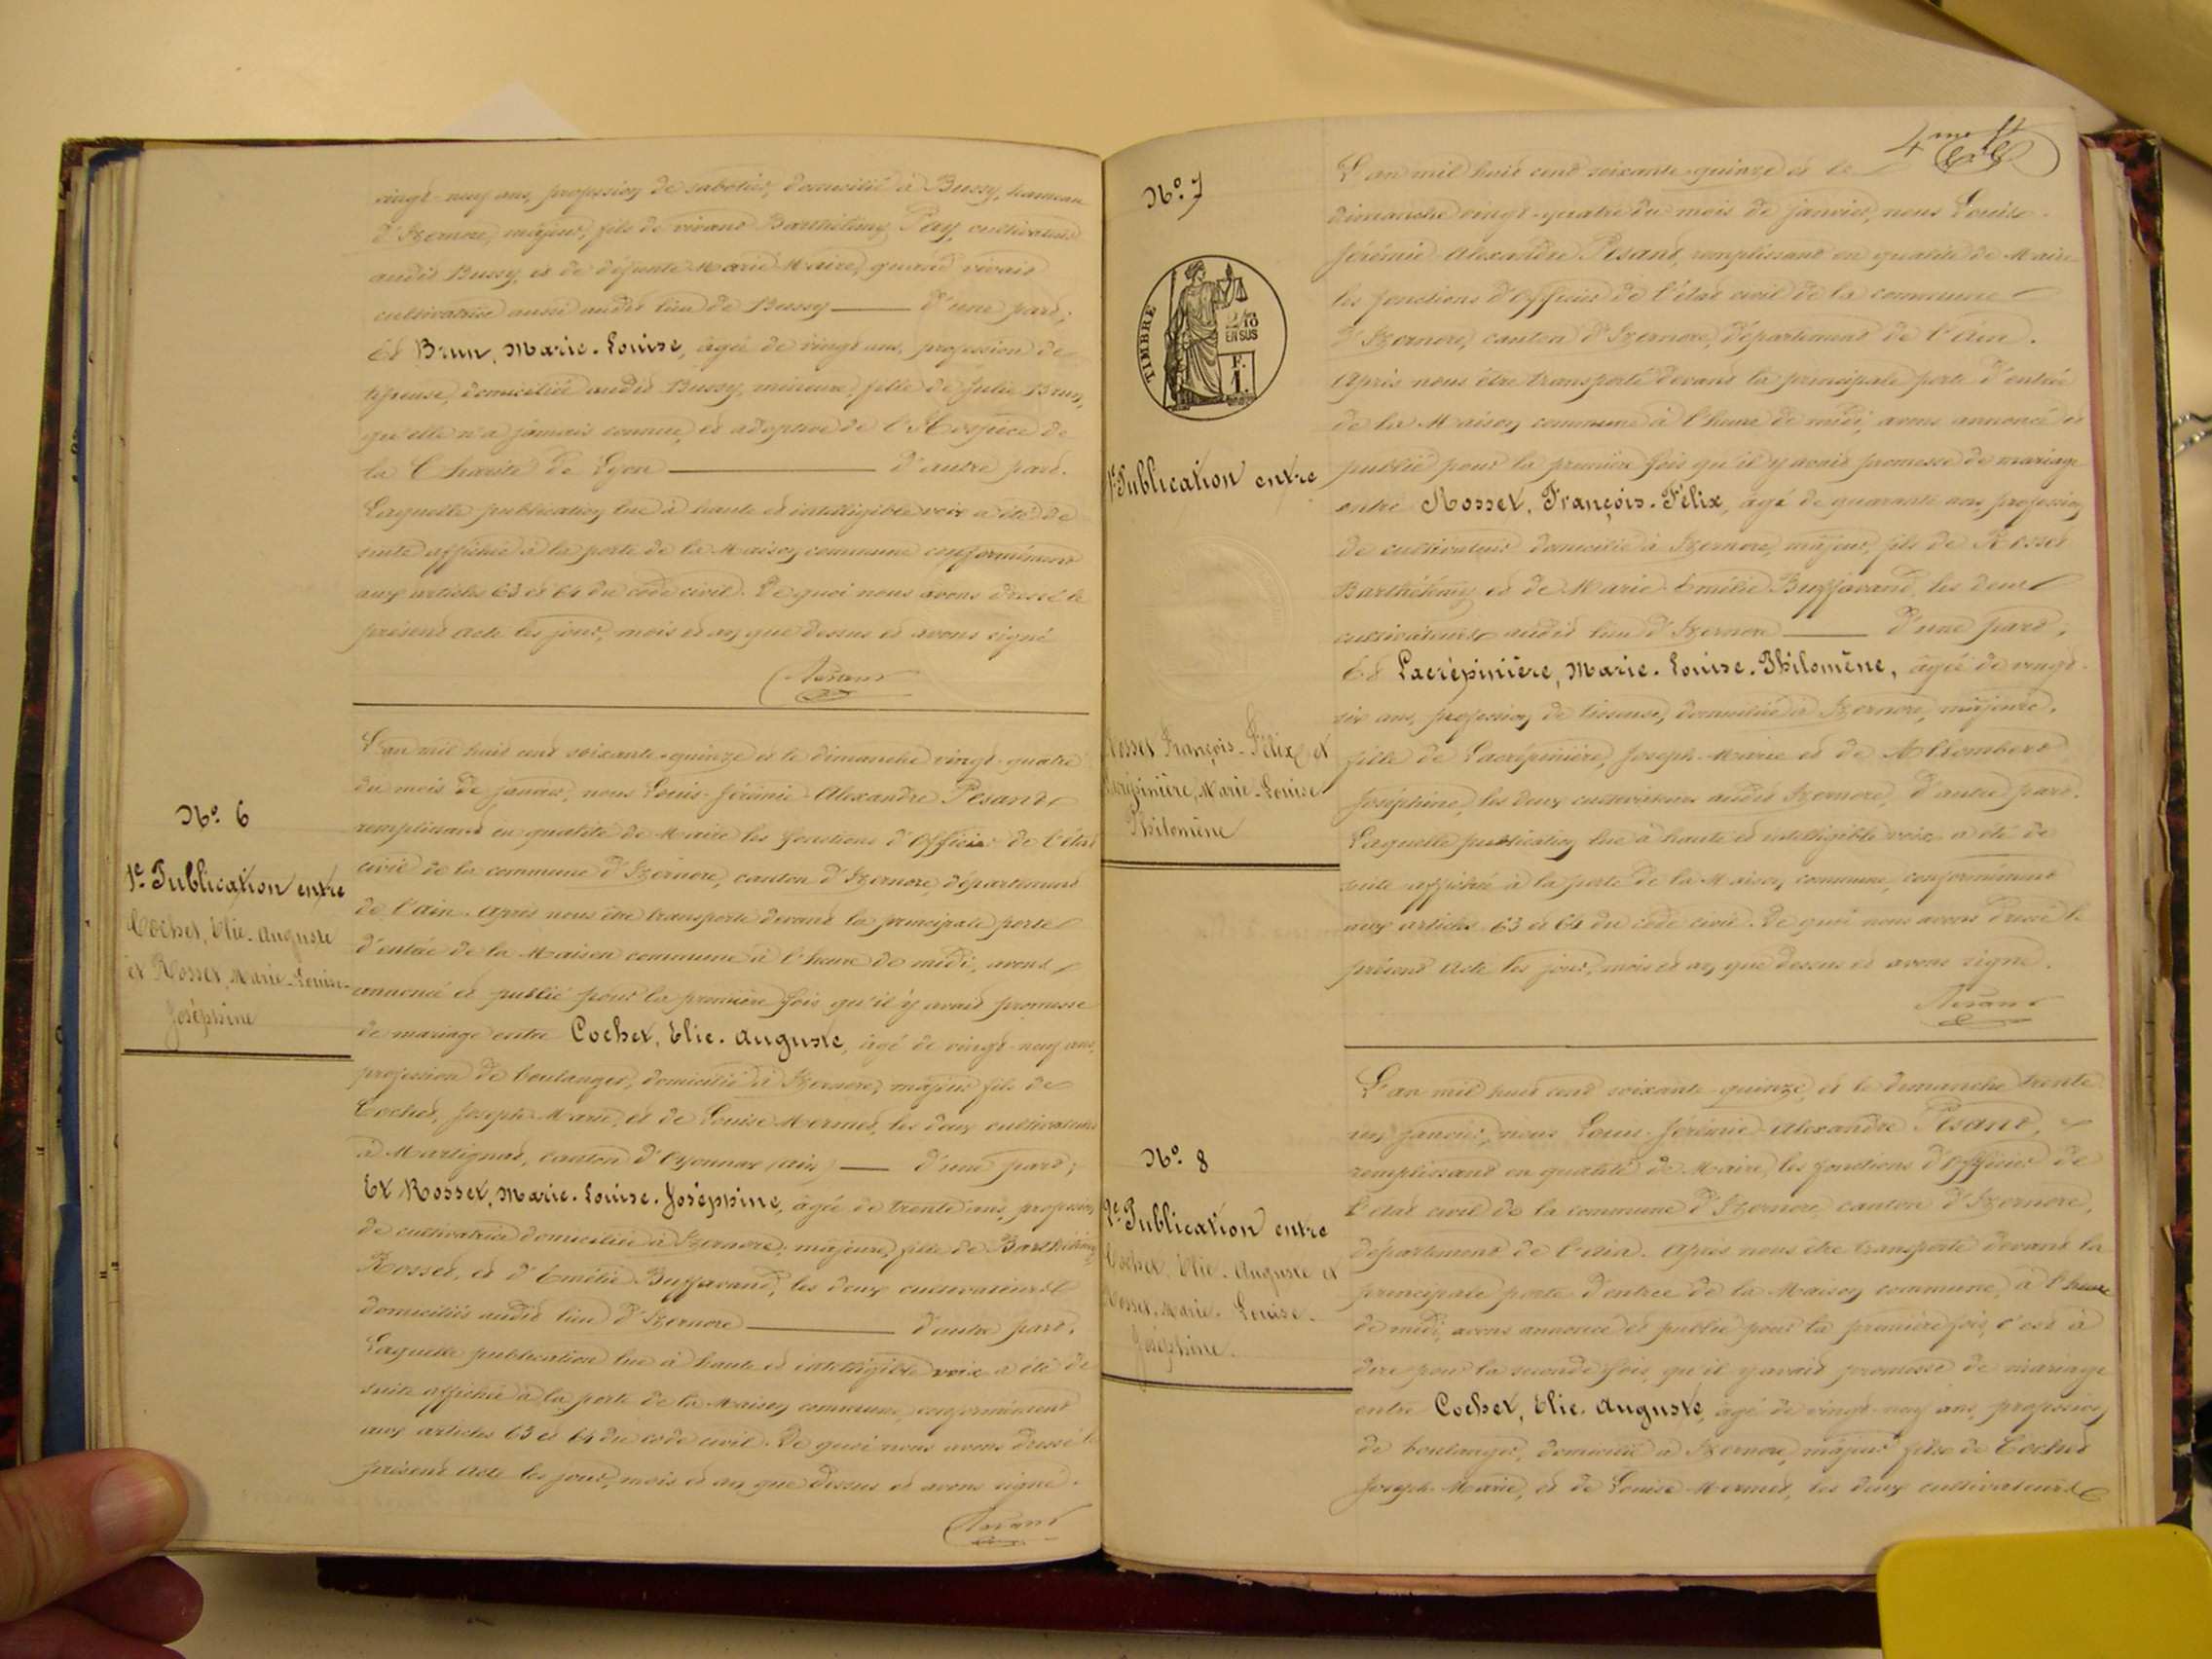 vingt-neuf ans, profession de sabotier, domicilié à Bussy, hameau
d'Izernore, majeur, fils de vivant Barthélemy Pay, cultivateur
audit Bussy, et de défunte Marie Maire, quand vivait
cultivatrice aussi audit lieu de Bussy — d'une part;
Et Brun, Marie-Louise, âgée de vingt ans, profession de
domiciliée audit Bussy, mineure, fille de Julie Brun,
qu'elle n'a jamais connue, et adoptive de l'Hospice de
la Charité de Lyon — d'autre part.
Laquelle publication lue à haute et intelligible voix a été de
suite affichée à la porte de la Maison commune conformément
aux articles 63 et 64 du code civil. De quoi nous avons dressé le
présent acte les jour, mois et an que dessus et avons signé
Pesant
N° 6
1e Publication entre
Cochet, Elie-Auguste
et Rosset, Marie-Louise-
Joséphine
L'an mil huit cent soixante-quinze et le dimanche vingt-quatre
du mois de janvier, nous Louis-Jérémie-Alexandre Pesant
remplissant en qualité de Maire les fonctions d'Officier de l'état
civil de la commune d'Izernore, canton d'Izernore, département
de l'Ain. Après nous être transporté devant la principale porte
d'entrée de la Maison commune à l'heure de midi, avons
annoncé et publié pour la première fois qu'il y avait promesse
de mariage entre Cochet, Elie-Auguste, âgé de vingt-neuf ans,
profession de boulanger, domicilié à Izernore, majeur fils de
Cochet, Joseph-Marie, et de Louise Mermet, les deux cultivateurs
à Martignat, canton d'Oyonnax (Ain) — d'une part;
Et Rosset, Marie-Louise-Joséphine, âgée de trente ans, profession
de cultivatrice domiciliée à Izernore, majeure, fille de Barthélemy
Rosset, et d'Emélie Buffavand, les deux cultivateurs
domiciliés audit lieu d'Izernore — d'autre part.
Laquelle publication lue à haute et intelligible voix a été de
suite affichée à la porte de la Maison commune, conformément
aux articles 63 et 64 du code civil. De quoi nous avons dressé le
présent acte les jour, mois et an que dessus et avons signé.
Pesant
4me
N° 7
TIMBRE
2/10
EN SUS
F.
1.
1e Publication entre
Rosset François-Félix et
Lacrépinière, Marie-Louise
Philomène
L'an mil huit cent soixante-quinze et le
dimanche vingt-quatre du mois de janvier, nous Louis-
Jérémie Alexandre Pesant, remplissant en qualité de Maire
les fonctions d'Officier de l'état civil de la commune
d'Izernore, canton d'Izernore, département de l'Ain.
Après nous être transporté devant la principale porte d'entrée
de la Maison commune à l'heure de midi, avons annoncé et
publié pour la première fois qu'il y avait promesse de mariage
entre Rosset, François-Félix, âgé de quarante ans, profession
de cultivateur domicilié à Izernore, majeur, fils de Rosset
Barthélemy et de Marie-Emélie Buffavand, les deux
cultivateurs audit lieu d'Izernore — d'une part;
Et Lacrépinière, Marie-Louise-Philomène, âgée de vingt-
six ans, profession de tisseuse, domiciliée à Izernore, majeure,
fille de Lacrépinière, Joseph-Marie et de
Joséphine, les deux cultivateurs audit Izernore, d'autre part.
Laquelle publication lue à haute et intelligible voix a été de
suite affichée à la porte de la Maison commune, conformément
aux articles 63 et 64 du code civil. De quoi nous avons dressé le
présent acte les jour, mois et an que dessus et avons signé.
Pesant
N° 8
2e Publication entre
Cochet, Elie-Auguste et
Rosset, Marie-Louise-
Joséphine.
L'an mil huit cent soixante-quinze, et le dimanche trente
un janvier, nous Louis-Jérémie-Alexandre Pesant,
remplissant en qualité de Maire, les fonctions d'Officier de
l'état civil de la commune d'Izernore canton d'Izernore,
département de l'Ain. Après nous être transporté devant la
principale porte d'entrée de la Maison commune, à l'heure
de midi, avons annoncé et publié pour la première fois, c'est à
dire pour la seconde fois, qu'il y avait promesse de mariage
entre Cochet, Elie-Auguste, âgé de vingt-neuf ans, profession
de boulanger, domicilié à Izernore, majeur fils de Cochet
Joseph-Marie, et de Louise Mermet, les deux cultivateurs